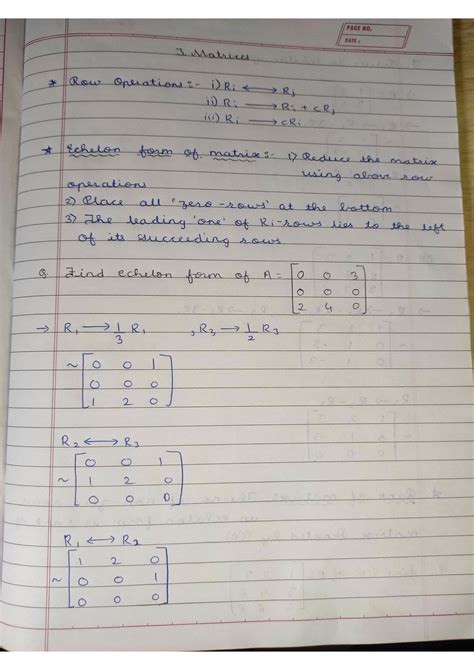 PAGE NO.
DATE :
J. Matrices
* Row Operations :- i) Ri ↔ Rj
ii) Ri → Ri + cRj
iii) Ri → cRi
* Echelon form of matrix :- 1) Reduce the matrix
using above row
operations
2) Place all 'zero-rows' at the bottom
3) The leading 'one' of Ri-rows lies to the left
of its succeeding rows.
Q. Find echelon form of A = [0 0 3
0 0 0
2 4 0]
→ R1 → 1/3 R1 , R3 → 1/2 R3
~ [0 0 1
0 0 0
1 2 0]
R2 ↔ R3
~ [0 0 1
1 2 0
0 0 0]
R1 ↔ R2
~ [1 2 0
0 0 1
0 0 0]